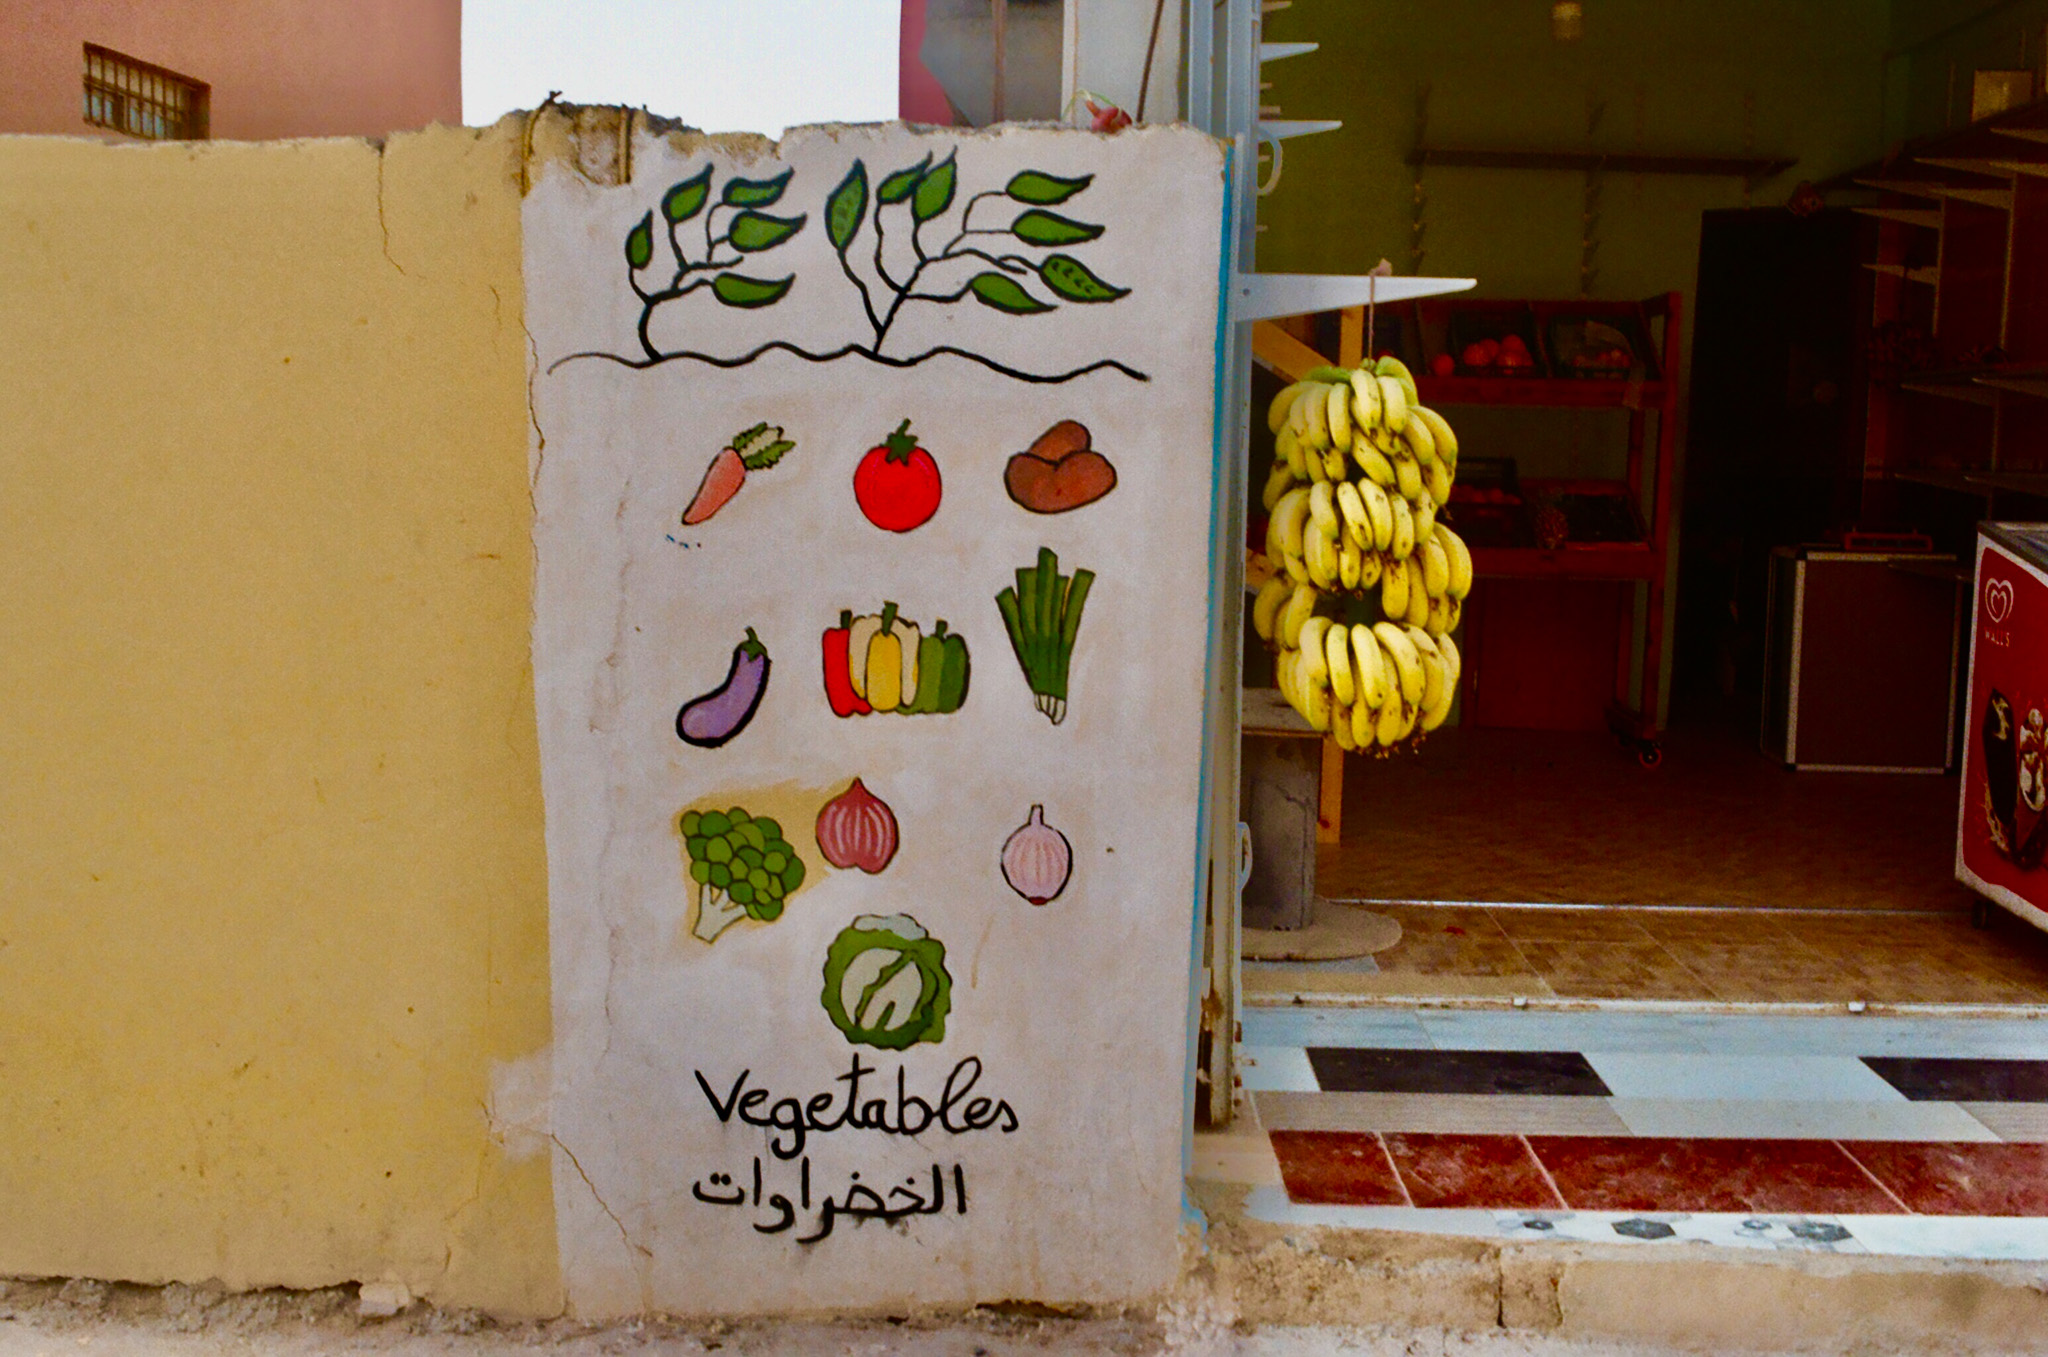 Vegetables
الخضراوات
WALL'S